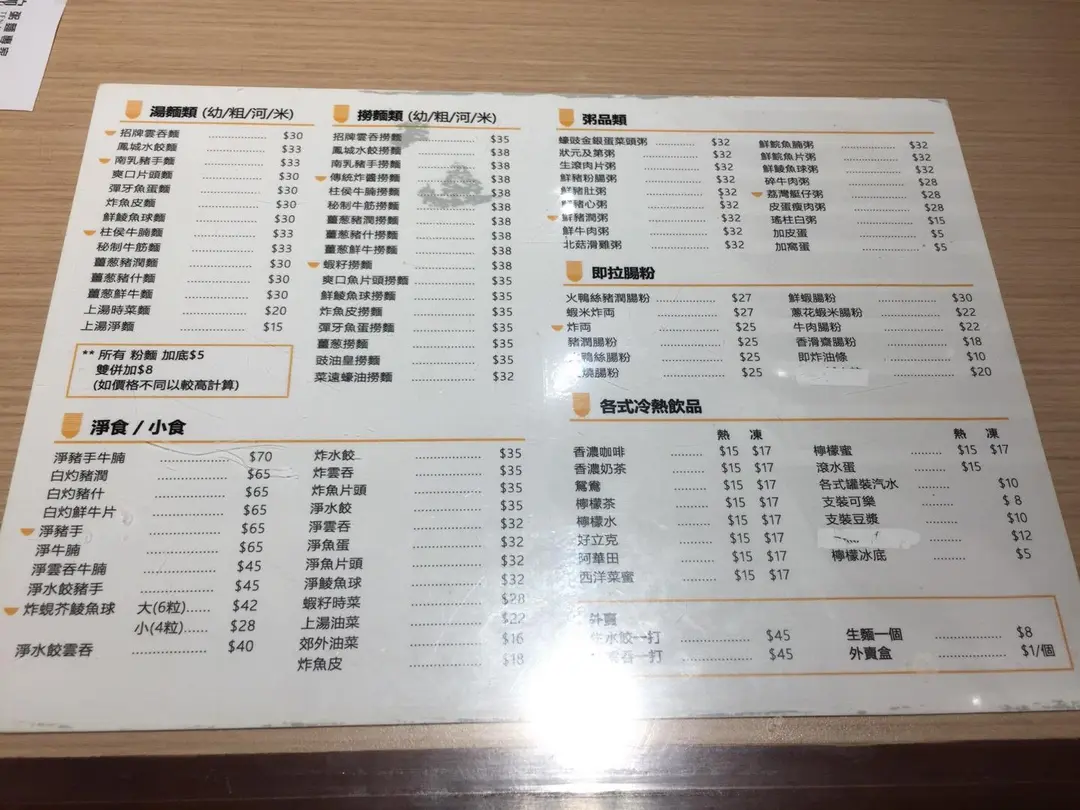 湯麵類 (幼/粗/河/米)
招牌雲吞麵 $30
鳳城水餃麵 $33
南乳豬手麵 $33
爽口片頭麵 $30
彈牙魚蛋麵 $30
炸魚皮麵 $30
鮮鯪魚球麵 $30
柱侯牛腩麵 $33
秘制牛筋麵 $33
薑葱豬潤麵 $30
薑葱豬什麵 $30
薑葱鮮牛麵 $30
上湯時菜麵 $20
上湯淨麵 $15
** 所有 粉麵 加底$5
雙併加$8
(如價格不同以較高計算)
撈麵類 (幼/粗/河/米)
招牌雲吞撈麵 $35
鳳城水餃撈麵 $38
南乳豬手撈麵 $38
傳統炸醬撈麵 $38
柱侯牛腩撈麵 $38
秘制牛筋撈麵 $38
薑葱豬潤撈麵 $38
薑葱豬什撈麵 $38
薑葱鮮牛撈麵 $38
蝦籽撈麵 $38
爽口魚片頭撈麵 $35
鮮鯪魚球撈麵 $35
炸魚皮撈麵 $35
彈牙魚蛋撈麵 $35
薑葱撈麵 $35
豉油皇撈麵 $35
菜遠蠔油撈麵 $32
粥品類
蠔豉金銀蛋菜頭粥 $32
狀元及第粥 $32
生滾肉片粥 $32
鮮豬粉腸粥 $32
鮮豬肚粥 $32
豬心粥 $32
鮮豬潤粥 $32
鮮牛肉粥 $32
北菇滑雞粥 $32
鮮鯇魚腩粥 $32
鮮鯇魚片粥 $32
鮮鯪魚球粥 $32
碎牛肉粥 $28
荔灣艇仔粥 $28
皮蛋瘦肉粥 $28
瑤柱白粥 $15
加皮蛋 $5
加窩蛋 $5
即拉腸粉
火鴨絲豬潤腸粉 $27
蝦米炸両 $27
炸両 $25
豬潤腸粉 $25
鴨絲腸粉 $25
燒腸粉 $25
鮮蝦腸粉 $30
蔥花蝦米腸粉 $22
牛肉腸粉 $22
香滑齋腸粉 $18
即炸油條 $10
$20
淨食 / 小食
淨豬手牛腩 $70
白灼豬潤 $65
白灼豬什 $65
白灼鮮牛片 $65
淨豬手 $65
淨牛腩 $65
淨雲吞牛腩 $45
淨水餃豬手 $45
炸蜆芥鯪魚球 大(6粒) $42
小(4粒) $28
淨水餃雲吞 $40
炸水餃 $35
炸雲吞 $35
炸魚片頭 $35
淨水餃 $35
淨雲吞 $32
淨魚蛋 $32
淨魚片頭 $32
淨鯪魚球 $32
蝦籽時菜 $28
上湯油菜 $22
郊外油菜 $16
炸魚皮 $18
各式冷熱飲品
熱 凍
香濃咖啡 $15 $17
香濃奶茶 $15 $17
鴛鴦 $15 $17
檸檬茶 $15 $17
檸檬水 $15 $17
好立克 $15 $17
阿華田 $15 $17
西洋菜蜜 $15 $17
熱 凍
檸檬蜜 $15 $17
滾水蛋 $15
各式罐裝汽水 $10
支裝可樂 $ 8
支裝豆漿 $10
$12
檸檬冰底 $5
外賣
生水餃一打 $45
雲吞一打 $45
生麵一個 $8
外賣盒 $1/個